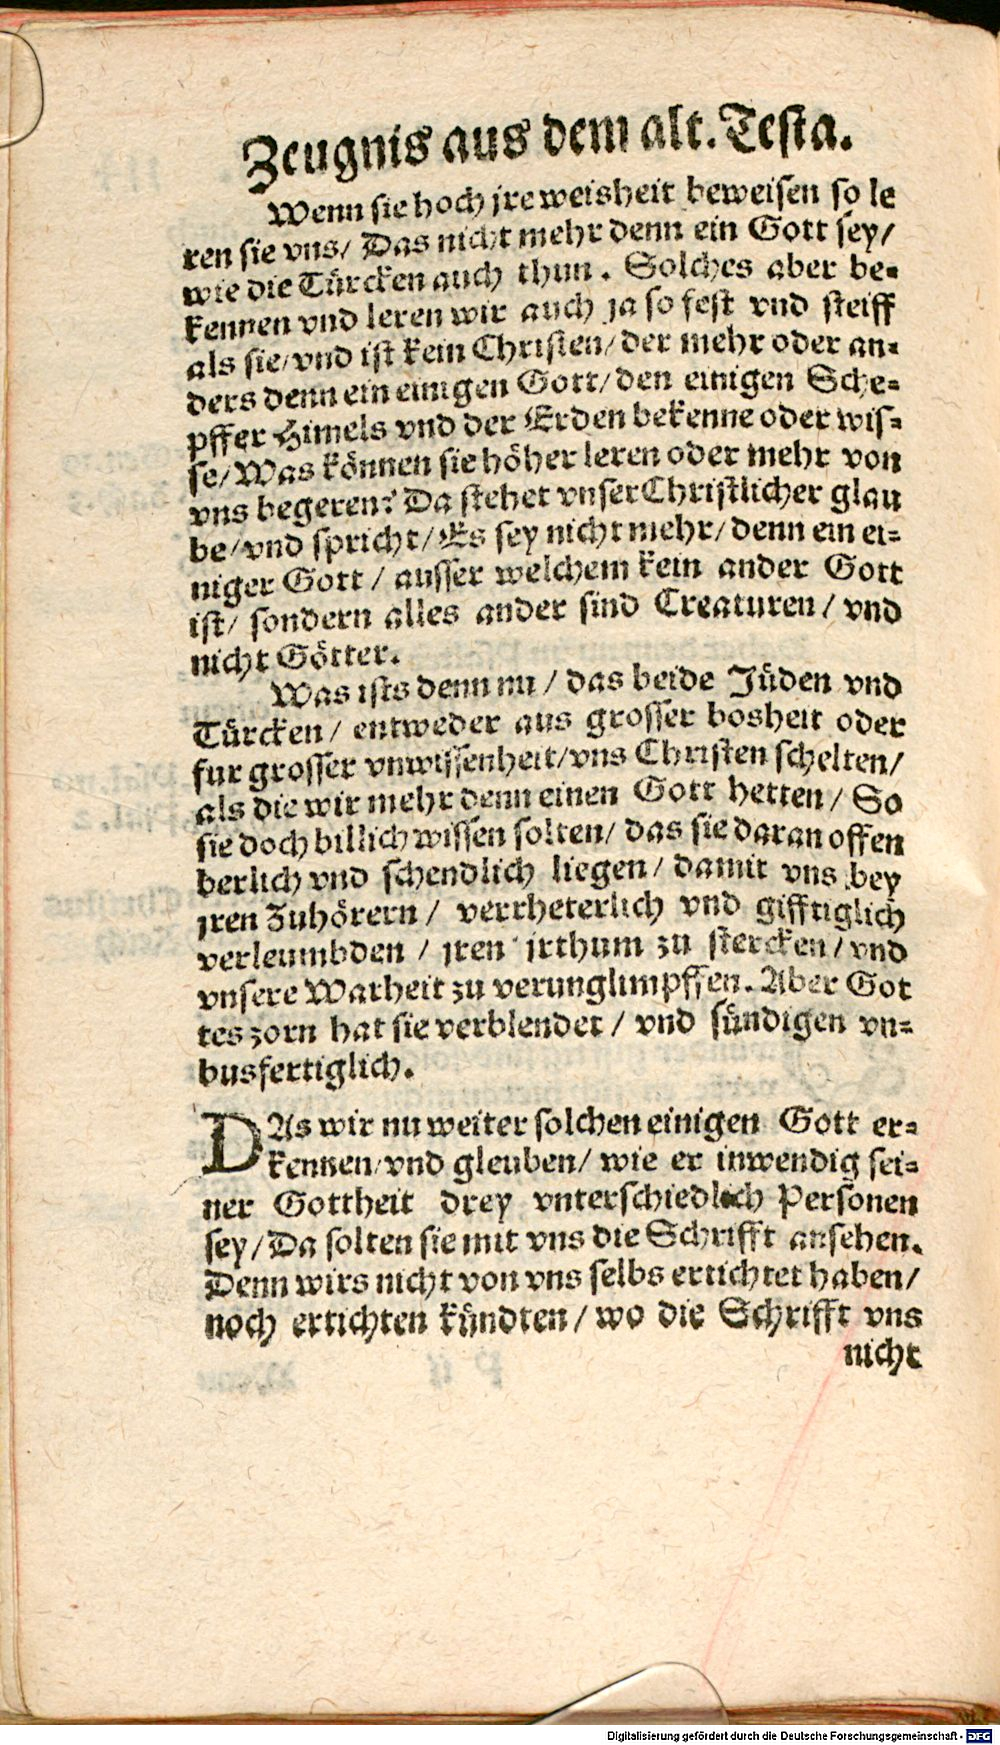 Zeugnis aus dem alt. Testa.
Wenn sie hoch jre weisheit beweisen so le
ren sie vns/ Das nicht mehr denn ein Gott sey/
wie die Türcken auch thun. Solches aber be-
kennen vnd leren wir auch ja so fest vnd steiff
als sie/vnd ist kein Christen/der mehr oder an-
ders denn ein einigen Gott/den einigen Sche-
pffer Himels vnd der Erden bekenne oder wis-
se/Was können sie höher leren oder mehr von
vns begeren? Da stehet vnser Christlicher glau
be/vnd spricht/Es sey nicht mehr/denn ein ei-
niger Gott/ ausser welchem kein ander Gott
ist/ sondern alles ander sind Creaturen/ vnd
nicht Götter.
Was ists denn nu/ das beide Jüden vnd
Türcken/ entweder aus grosser bosheit oder
fur grosser vnwissenheit/vns Christen schelten/
als die wir mehr denn einen Gott hetten/ So
sie doch billich wissen solten/ das sie daran offen
berlich vnd schendlich liegen/ damit vns bey
jren Zuhörern/ verrheterlich vnd gifftiglich
verleumbden/ jren jrthum zu stercken/vnd
vnsere Warheit zu verunglimpffen. Aber Got
tes zorn hat sie verblendet/ vnd sündigen vn-
busfertiglich.
DAs wir nu weiter solchen einigen Gott er-
kennen/vnd gleuben/ wie er inwendig sei-
ner Gottheit drey vnterschiedlich Personen
sey/Da solten sie mit vns die Schrifft ansehen.
Denn wirs nicht von vns selbs ertichtet haben/
noch ertichten kündten/ wo die Schrifft vns
nicht
Digitalisierung gefördert durch die Deutsche Forschungsgemeinschaft - DFG